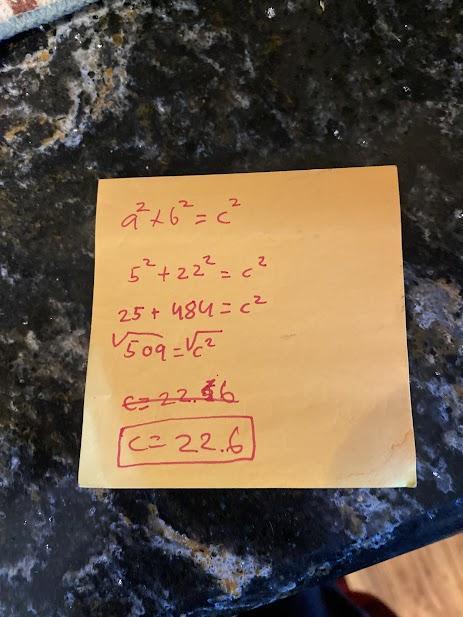 a² + b² = c²
5² + 22² = c²
25 + 484 = c²
√509 = √c²
c = 22.6